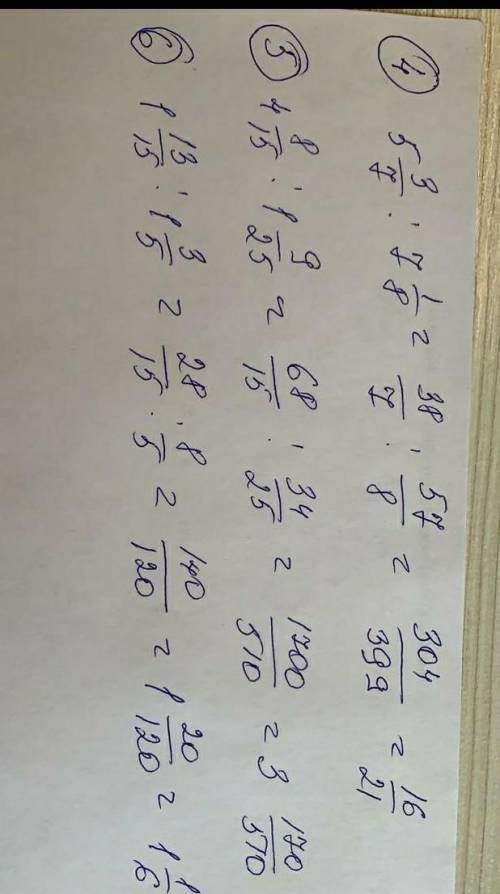 ④ 5 3/7 : 7 1/8 = 38/7 : 57/8 = 304/399 = 16/21
⑤ 4 8/15 : 1 9/25 = 68/15 : 34/25 = 1700/510 = 3 170/510
⑥ 1 13/15 : 1 3/5 = 28/15 : 8/5 = 140/120 = 1 20/120 = 1 1/6